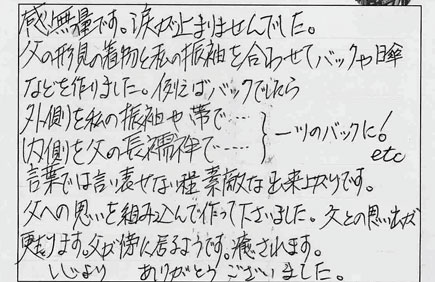 感無量です。涙が止まりませんでした。
父の形見の着物と私の振袖を合わせてバックや日傘
などを作りました。例えばバックでしたら
外側を私の振袖や帯で‥‥
内側を父の長襦袢で‥‥‥ } 一ツのバックに! etc
言葉では言い表せない程素敵な出来上がりです。
父への思いを組み込んで作って下さいました。父との思い出が
甦ります。父が傍に居るようです。癒されます。
心より ありがとうございました。